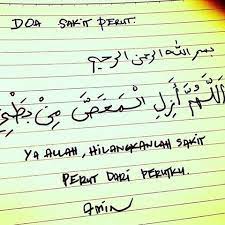 DOA SAKIT PERUT.
بسم الله الرحمن الرحيم
اَللّٰهُمَّ أَزِلِ الْمَغَصَ مِنْ بَطْنِيْ
YA ALLAH, HILANGKANLAH SAKIT
PERUT DARI PERUTKU.
Amin